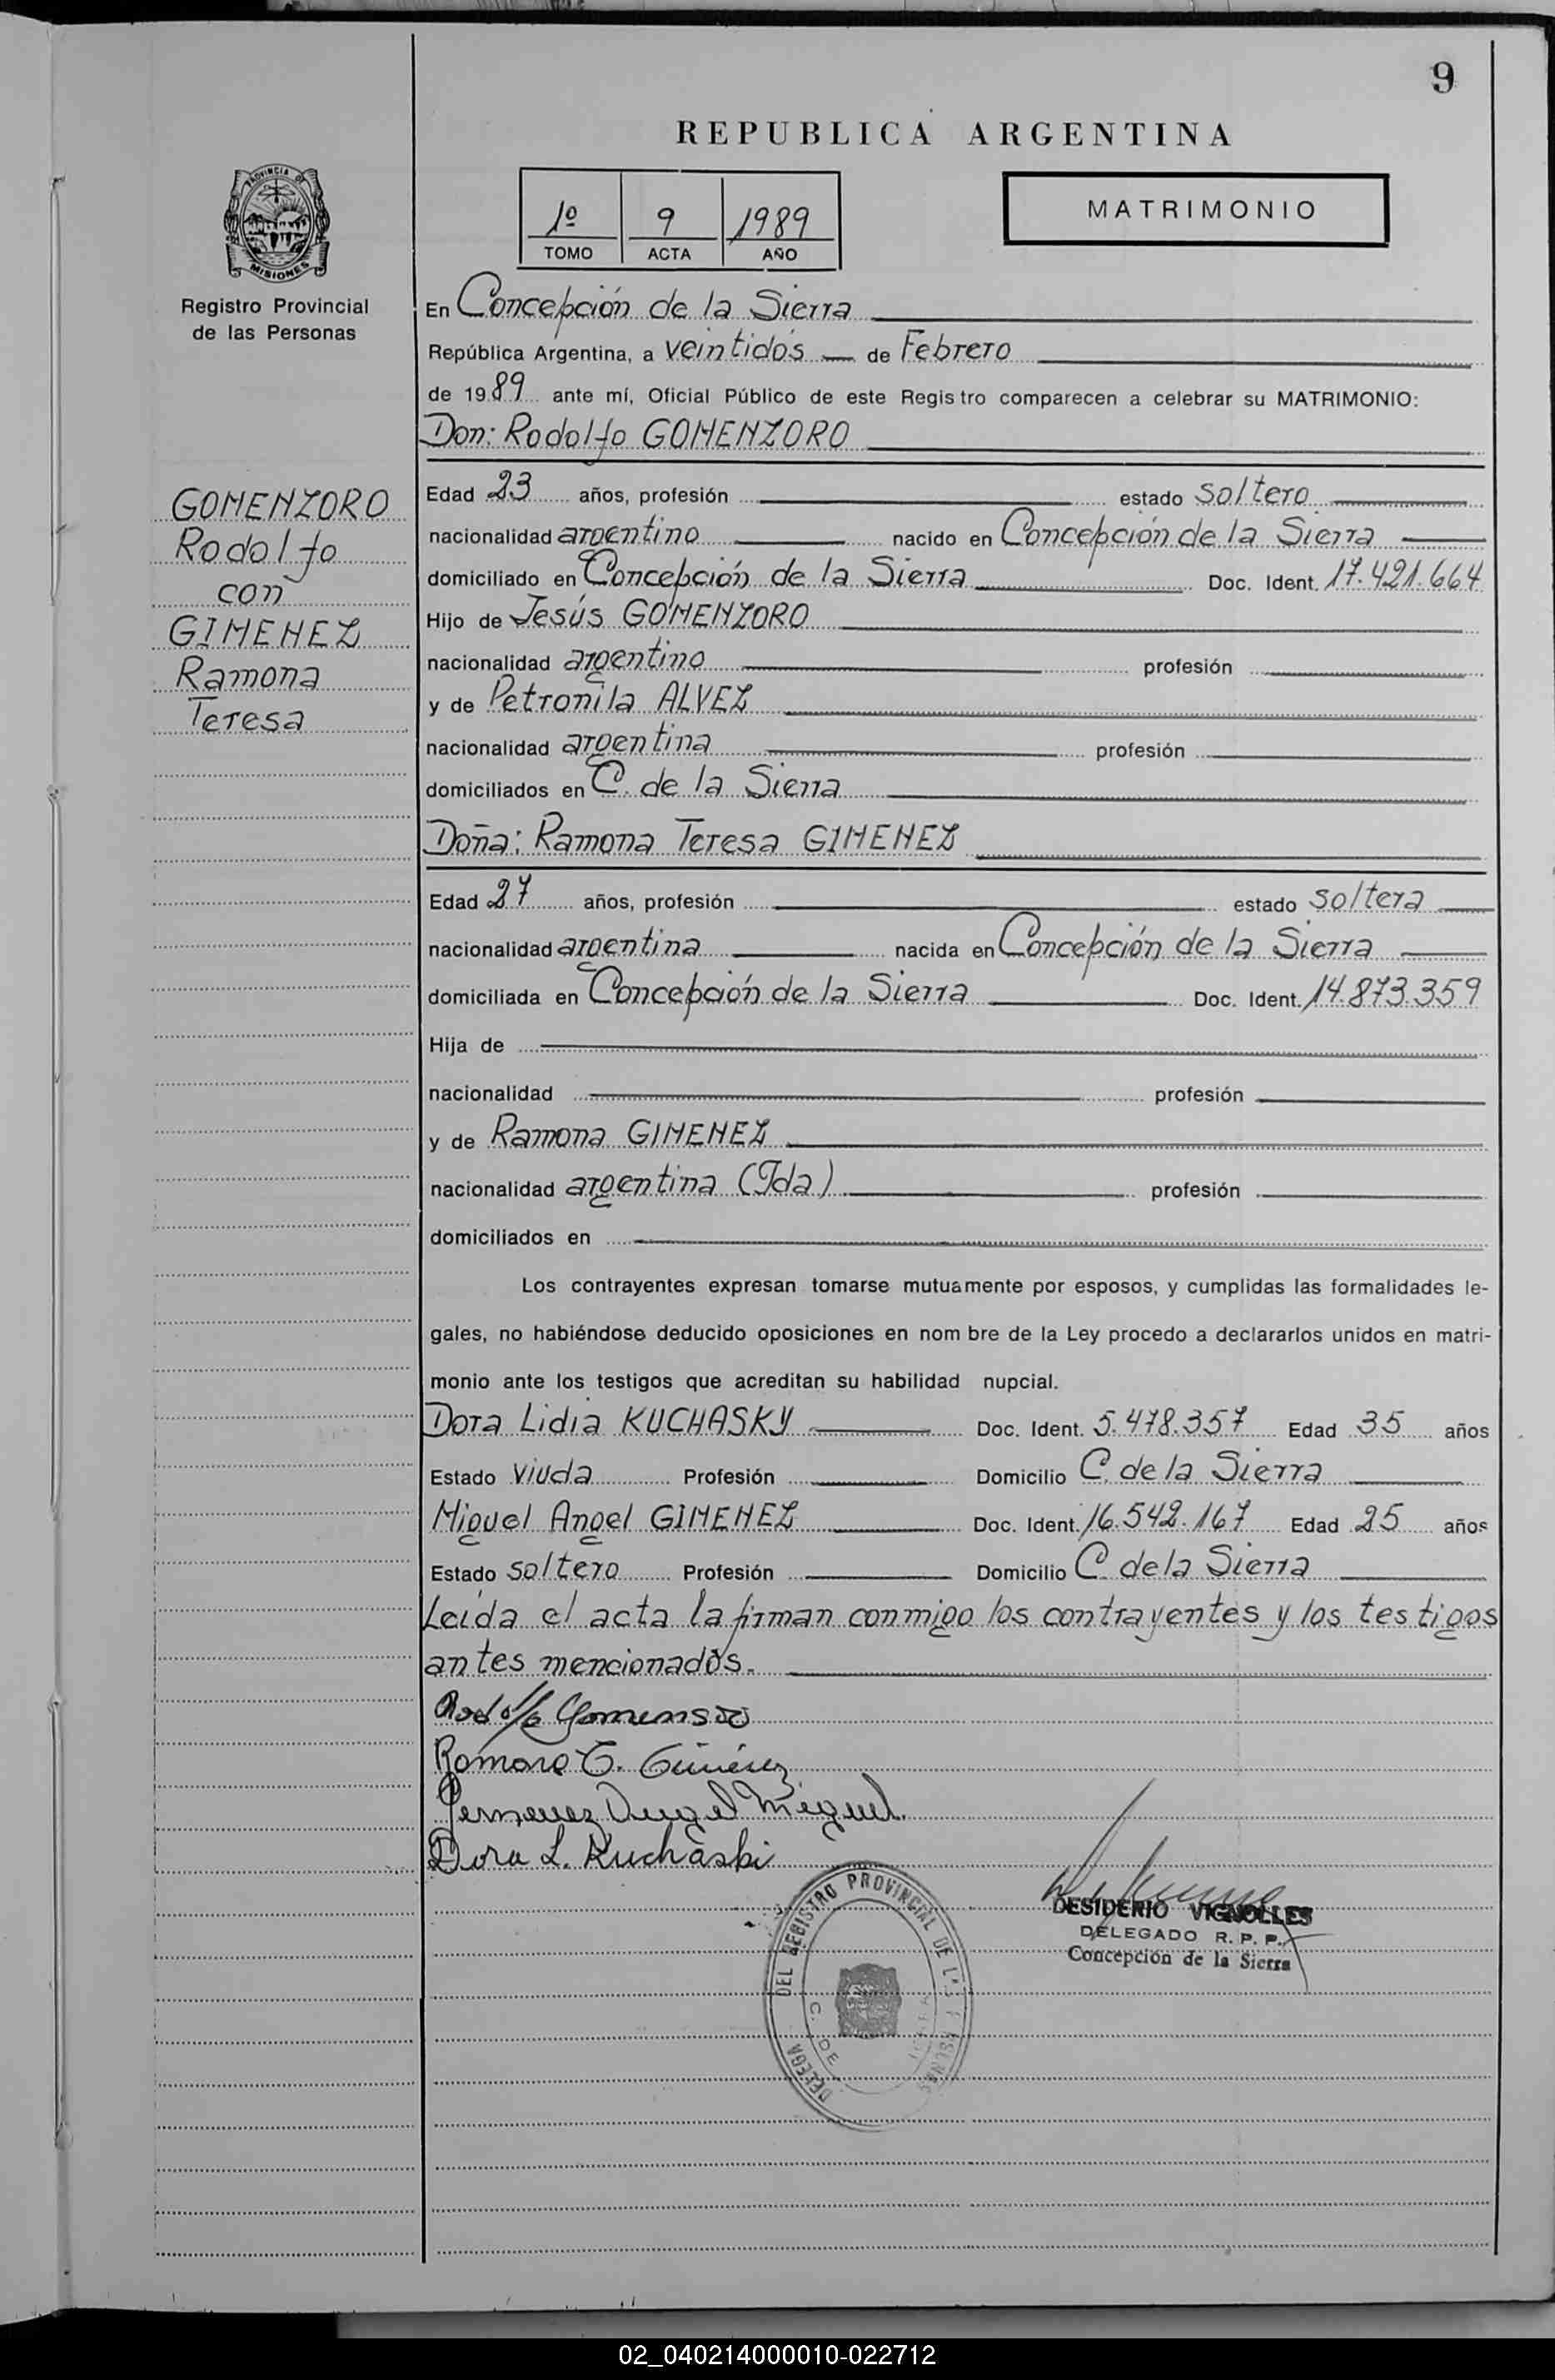 9
REPUBLICA ARGENTINA
PROVINCIA DE
MISIONES
Registro Provincial
de las Personas
1º 9 1989
TOMO ACTA AÑO
MATRIMONIO
En Concepción de la Sierra
República Argentina, a veintidós de Febrero
de 1989 ante mí, Oficial Público de este Registro comparecen a celebrar su MATRIMONIO:
Don: Rodolfo GOMENZORO
GOMENZORO
Rodolfo
con
GIMENEZ
Ramona
Teresa
Edad 23 años, profesión estado soltero
nacionalidad argentino nacido en Concepción de la Sierra
domiciliado en Concepción de la Sierra Doc. Ident. 17.421.664
Hijo de Jesús GOMENZORO
nacionalidad argentino profesión
y de Petronila ALVEZ
nacionalidad argentina profesión
domiciliados en C. de la Sierra
Doña: Ramona Teresa GIMENEZ
Edad 27 años, profesión estado soltera
nacionalidad argentina nacida en Concepción de la Sierra
domiciliada en Concepción de la Sierra Doc. Ident. 14.873.359
Hija de
nacionalidad profesión
y de Ramona GIMENEZ
nacionalidad argentina (Fda) profesión
domiciliados en
Los contrayentes expresan tomarse mutuamente por esposos, y cumplidas las formalidades le-
gales, no habiéndose deducido oposiciones en nom bre de la Ley procedo a declararlos unidos en matri-
monio ante los testigos que acreditan su habilidad nupcial.
Dora Lidia KUCHASKY Doc. Ident. 5.478.357 Edad 35 años
Estado viuda Profesión Domicilio C. de la Sierra
Miguel Angel GIMENEZ Doc. Ident. 16.542.167 Edad 25 años
Estado soltero Profesión Domicilio C. de la Sierra
Leída el acta la firman conmigo los contrayentes y los testigos
antes mencionados.
Rodolfo Gomensoro
Ramona T. Giménez
Angel Miguel
Dora L. Kuchaski
DEL REGISTRO PROVINCIAL DE LAS
C. DE
DELEGA
DESIDERIO VIGNOLLES
DELEGADO R. P. P.
Concepción de la Sierra
02_040214000010-022712